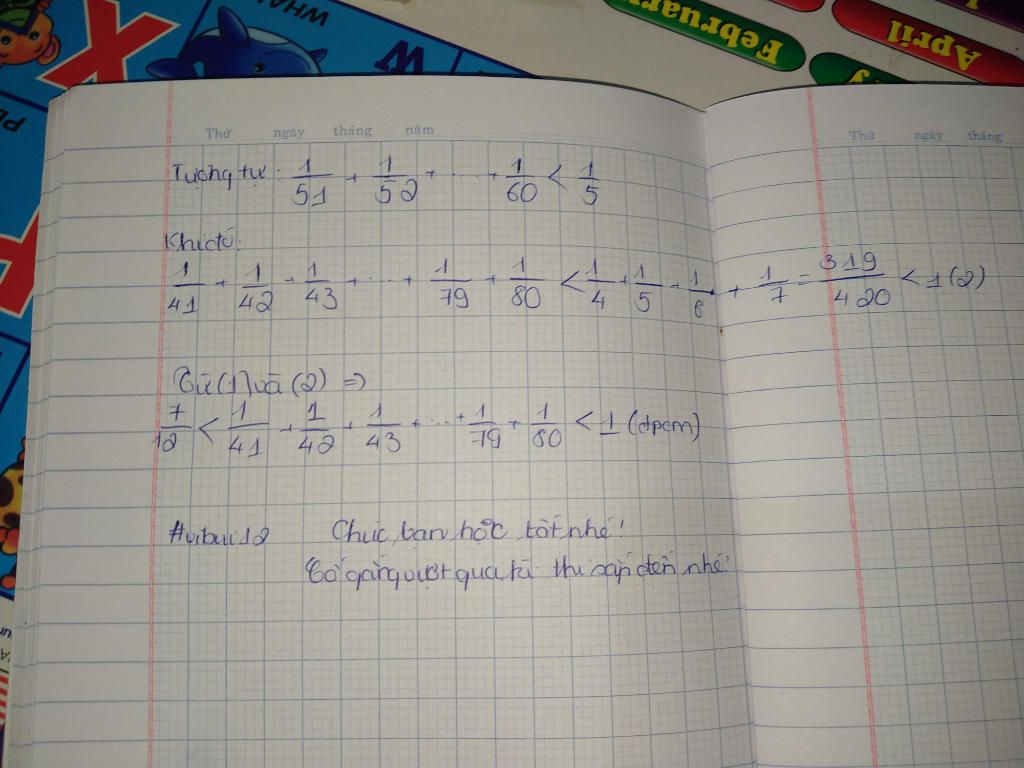 WHA
W
X
February
April
Thứ ngày tháng năm
Thứ ngày tháng
Tương tự: 1/51 + 1/52 + ..... + 1/60 < 1/5
Khi đó:
1/41 + 1/42 + 1/43 + ... + 1/79 + 1/80 < 1/4 + 1/5 + 1/6 + 1/7 = 319/420 < 1 (2)
Từ (1) và (2) =>
7/12 < 1/41 + 1/42 + 1/43 + ... + 1/79 + 1/80 < 1 (đpcm)
#vibui12 Chúc bạn học tốt nhé!
Cố gắng vượt qua kì thi sắp đến nhé!